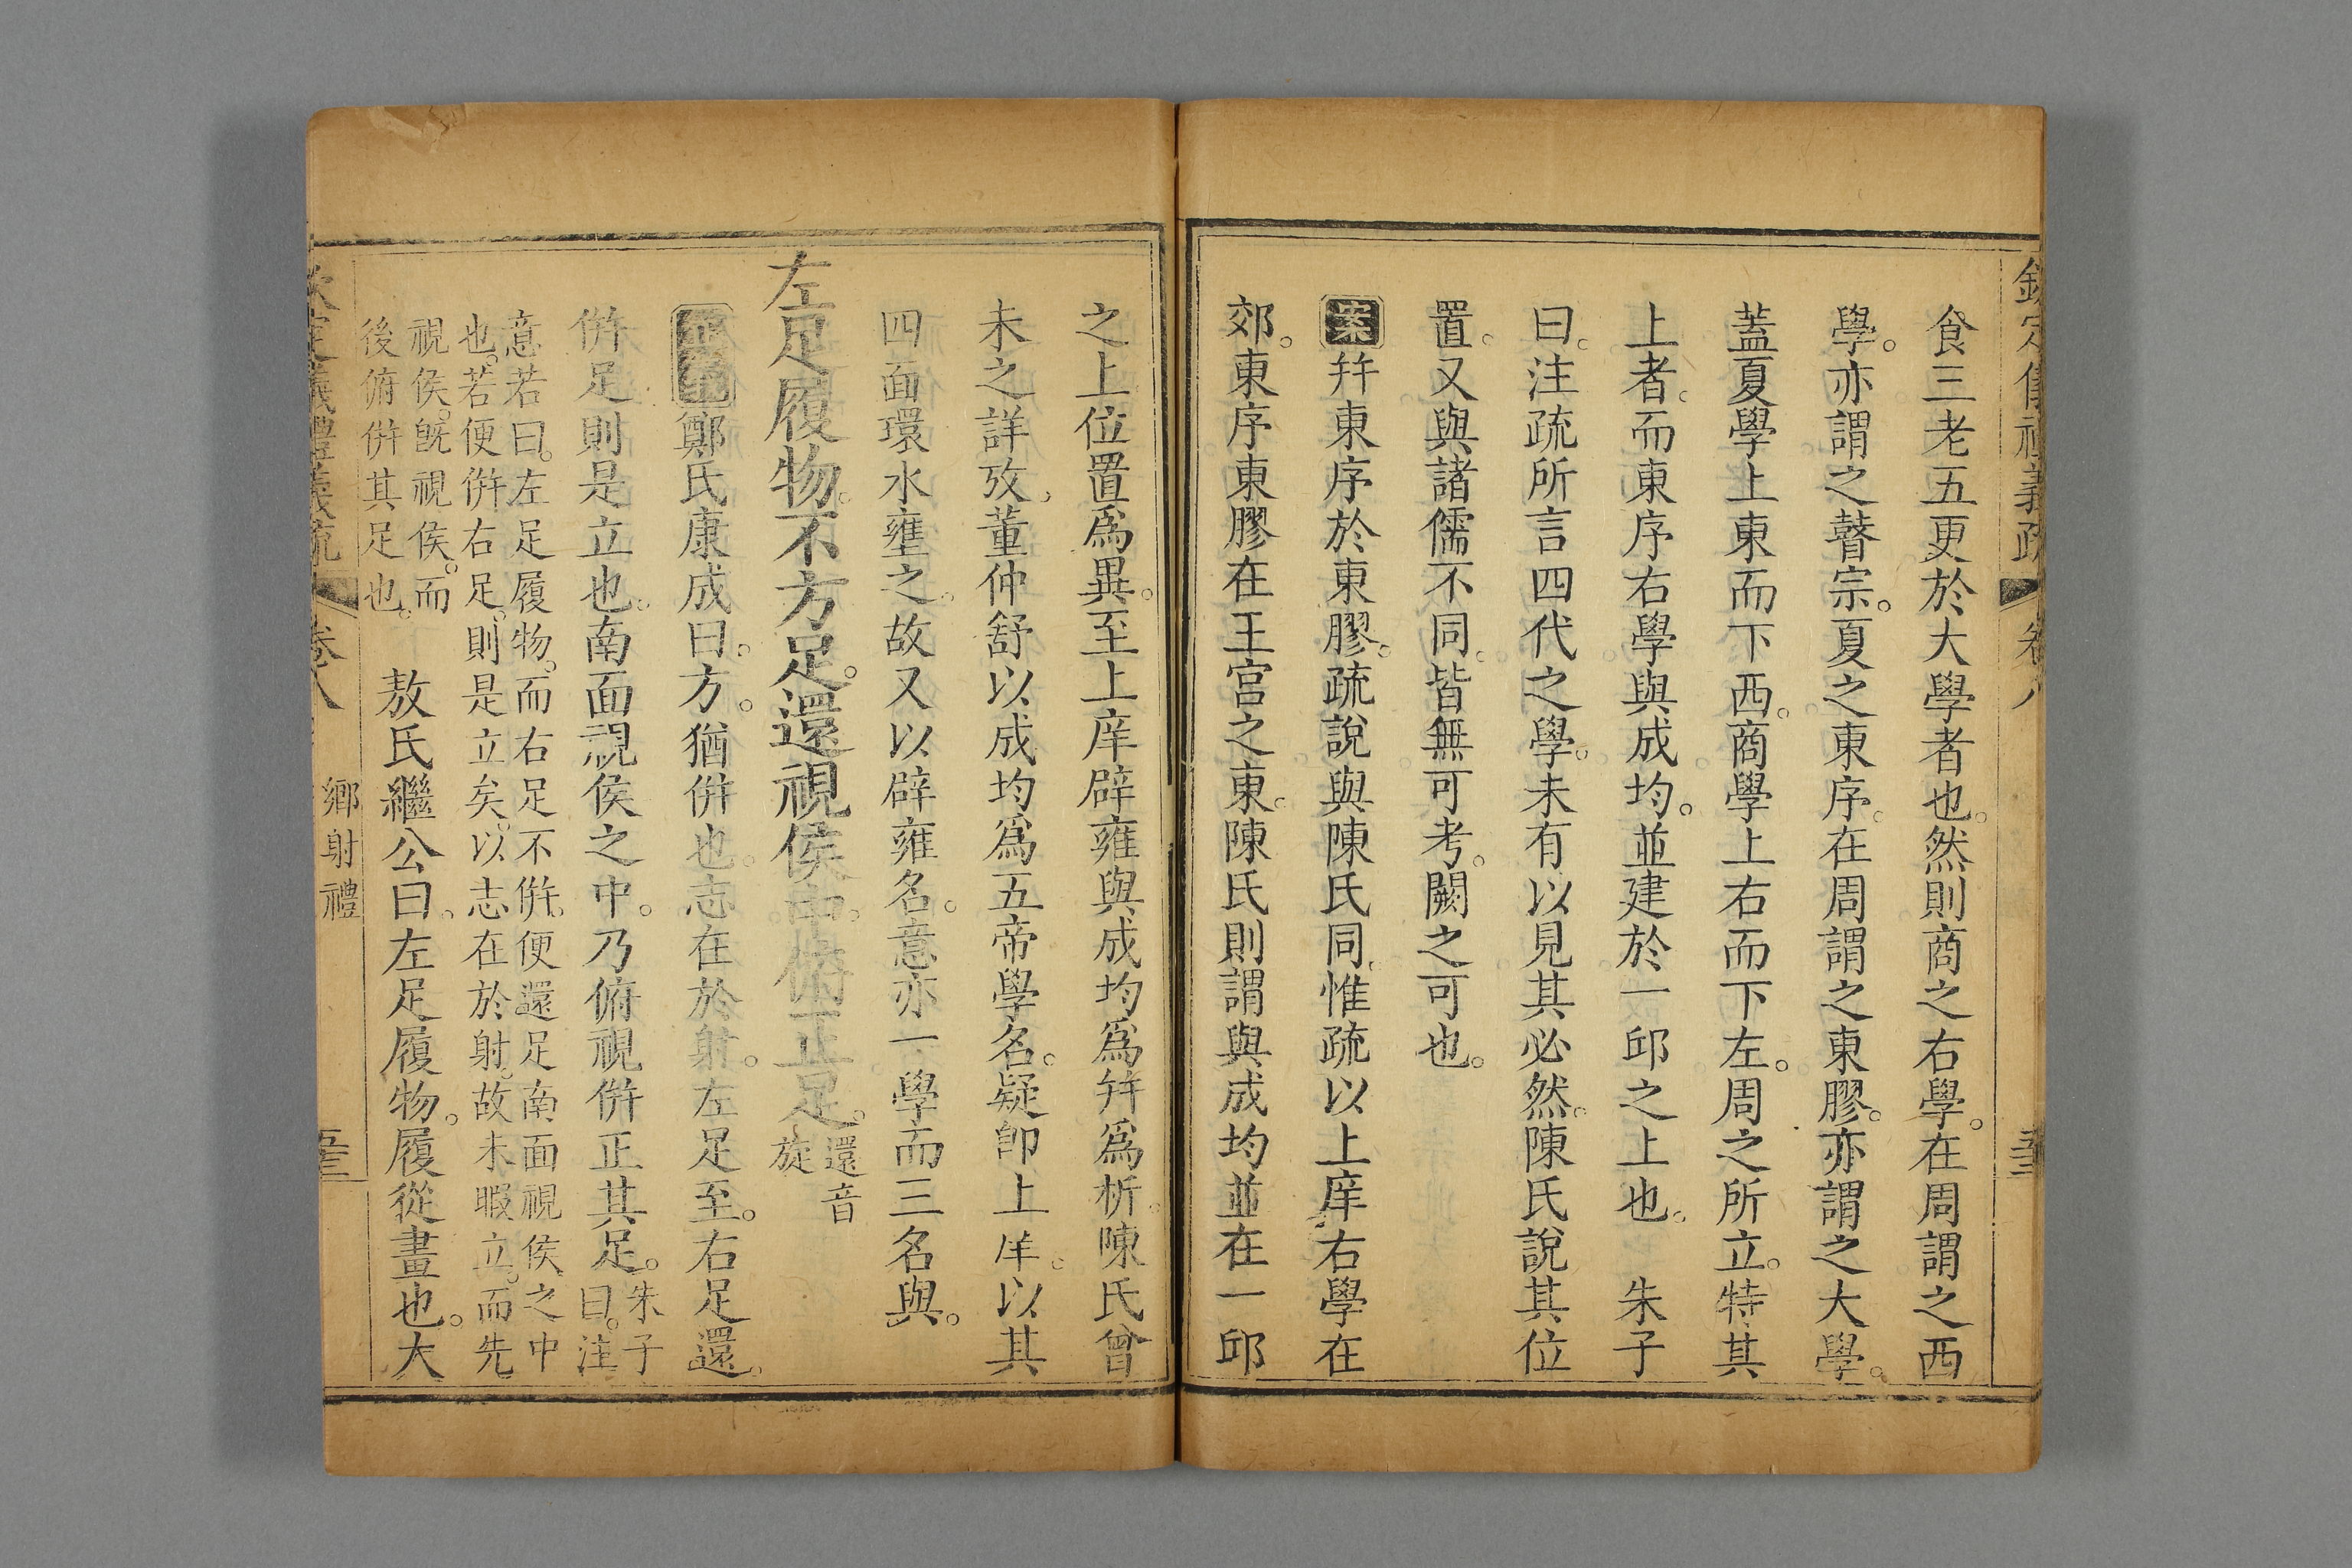 食三老五更於大學者也。然則商之右學。在周謂之西
學。亦謂之瞽宗。夏之東序。在周謂之東膠。亦謂之大學。
蓋夏學上東而下西。商學上右而下左。周之所立。特其
上者。而東序右學與成均。並建於一邱之上也。 朱子
曰。注疏所言四代之學。未有以見其必然。陳氏說其位
置。又與諸儒不同。皆無可考。闕之可也。
案 幷東序於東膠。疏說與陳氏同。惟疏以上庠右學在
郊。東序東膠在王宮之東。陳氏則謂與成均並在一邱
之上位置爲異。至上庠辟雍與成均爲幷爲析。陳氏曾
未之詳攷。董仲舒以成均爲五帝學名。疑卽上庠。以其
四面環水壅之。故又以辟雍名。意亦一學而三名與。
左足履物。不方足。還視侯中。俯正足。還音
旋
正義 鄭氏康成曰。方。猶倂也。志在於射。左足至。右足還。
倂足則是立也。南面視侯之中。乃俯視倂正其足。朱子
曰。注
意若曰。左足履物。而右足不倂。便還足南面視侯之中
也。若便倂右足。則是立矣。以志在於射。故未暇立。而先
視侯。旣視侯。而
後俯倂其足也。
敖氏繼公曰。左足履物。履從畫也。大
義禮義疏 卷八
鄉射禮